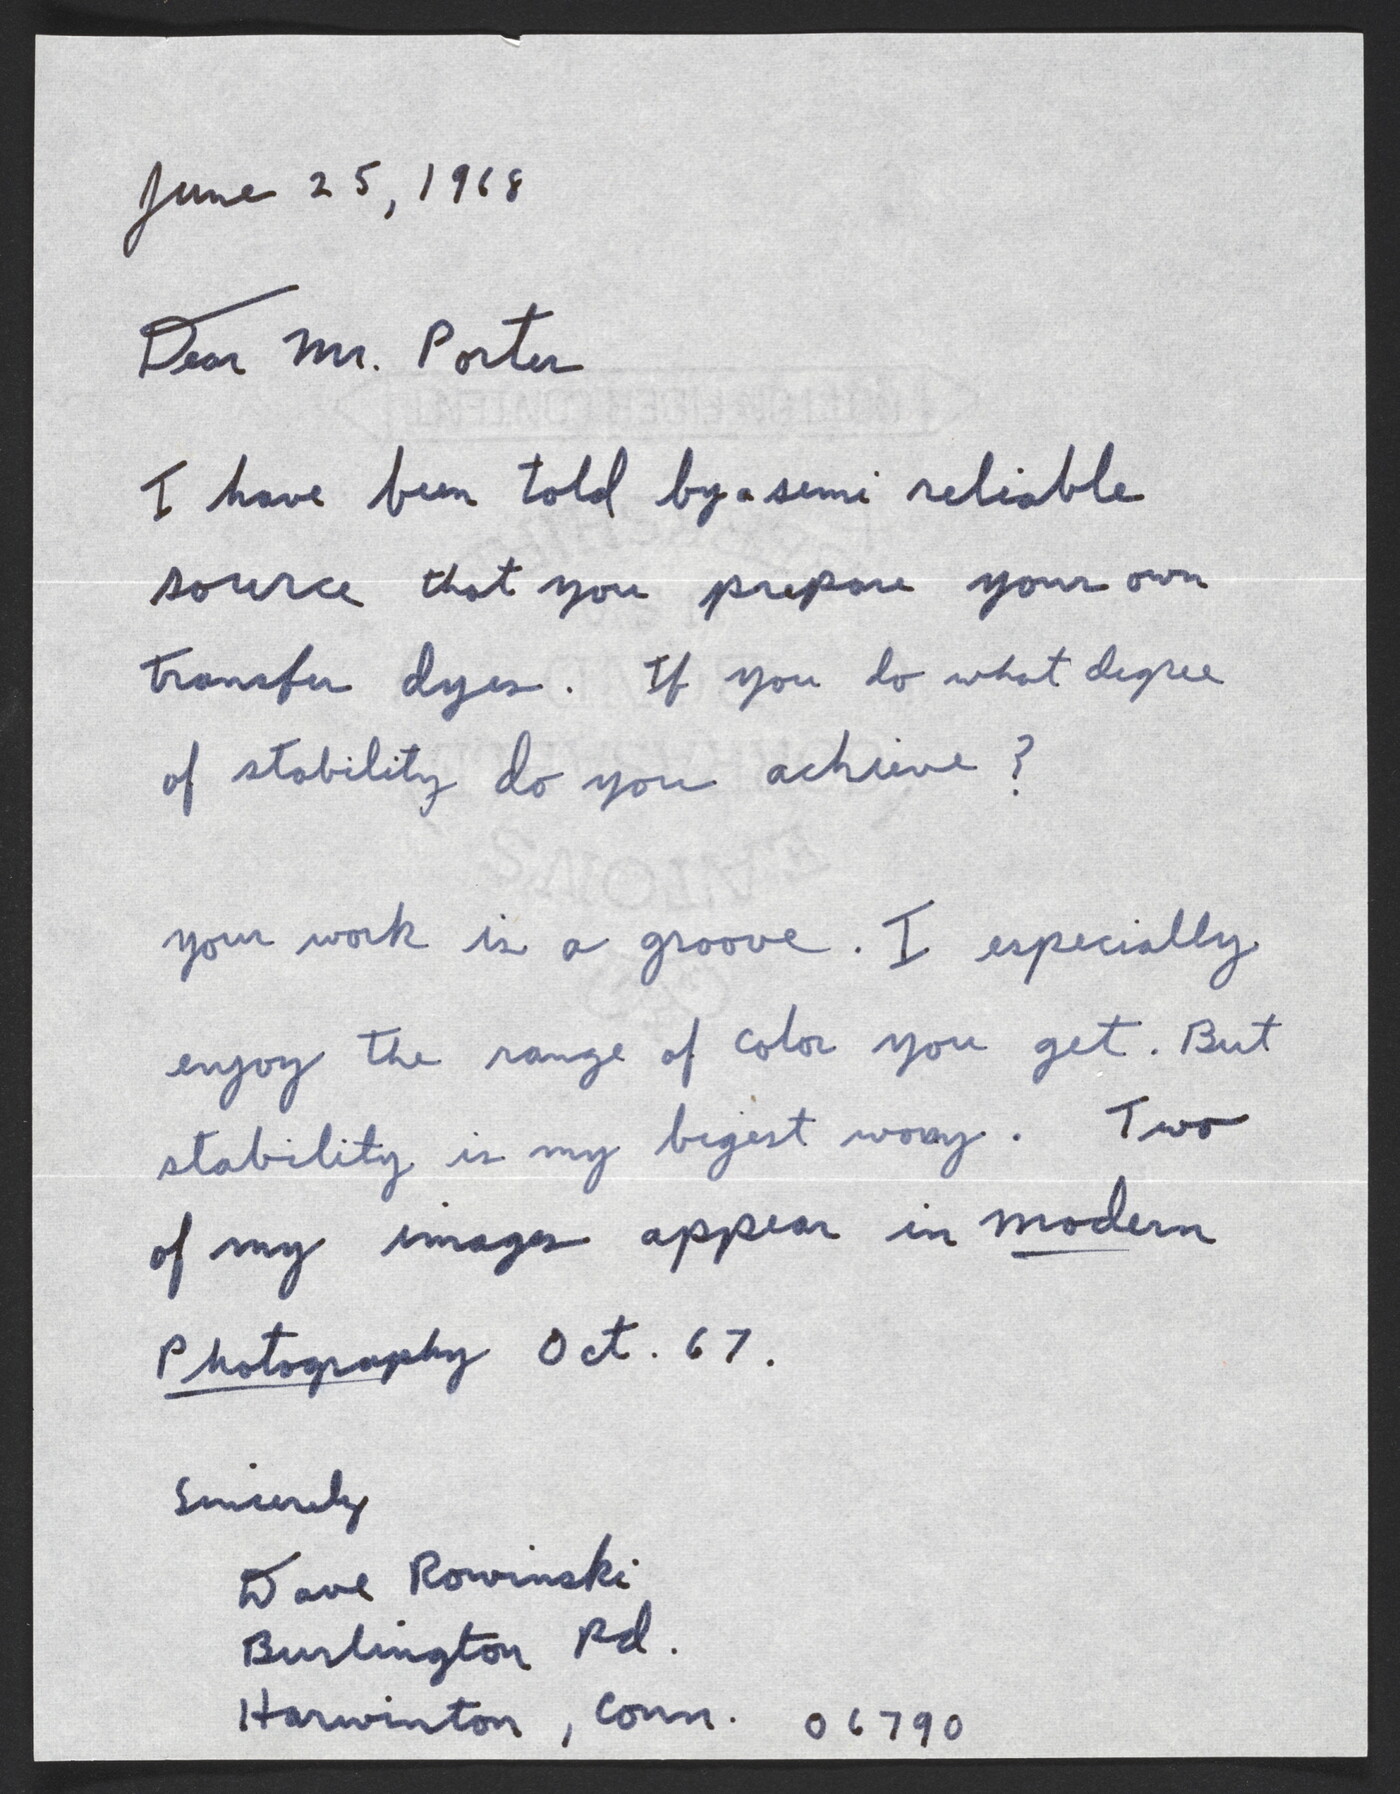 June 25, 1968
Dear Mr. Porter
I have been told by a semi reliable
source that you prepare your own
transfer dyes. If you do what degree
of stability do you achieve?
your work is a groove. I especially
enjoy the range of color you get. But
stability is my bigest worry. Two
of my images appear in Modern
Photography Oct. 67.
Sincerely
Dave Rowinski
Burlington Rd.
Harwinton, Conn. 06790